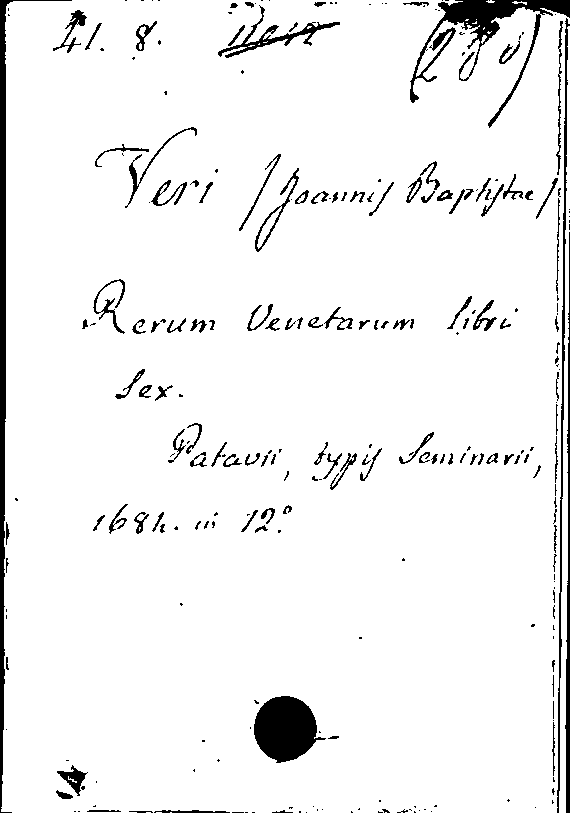 41. 8.
Veri /Joannis Baptistae/
Rerum Venetarum libri
sex.
Patavii, typis Seminarii,
1684. in 12º